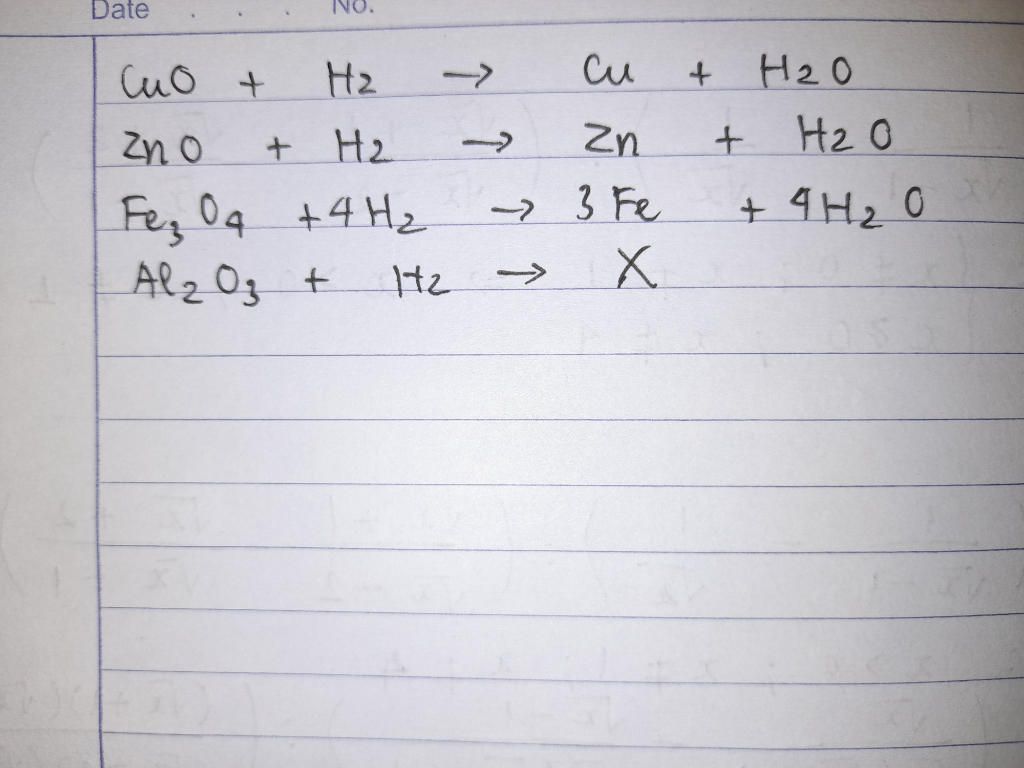 Date . . . No.
CuO + H2 → Cu + H2O
ZnO + H2 → Zn + H2O
Fe3O4 + 4H2 → 3Fe + 4H2O
Al2O3 + H2 → X